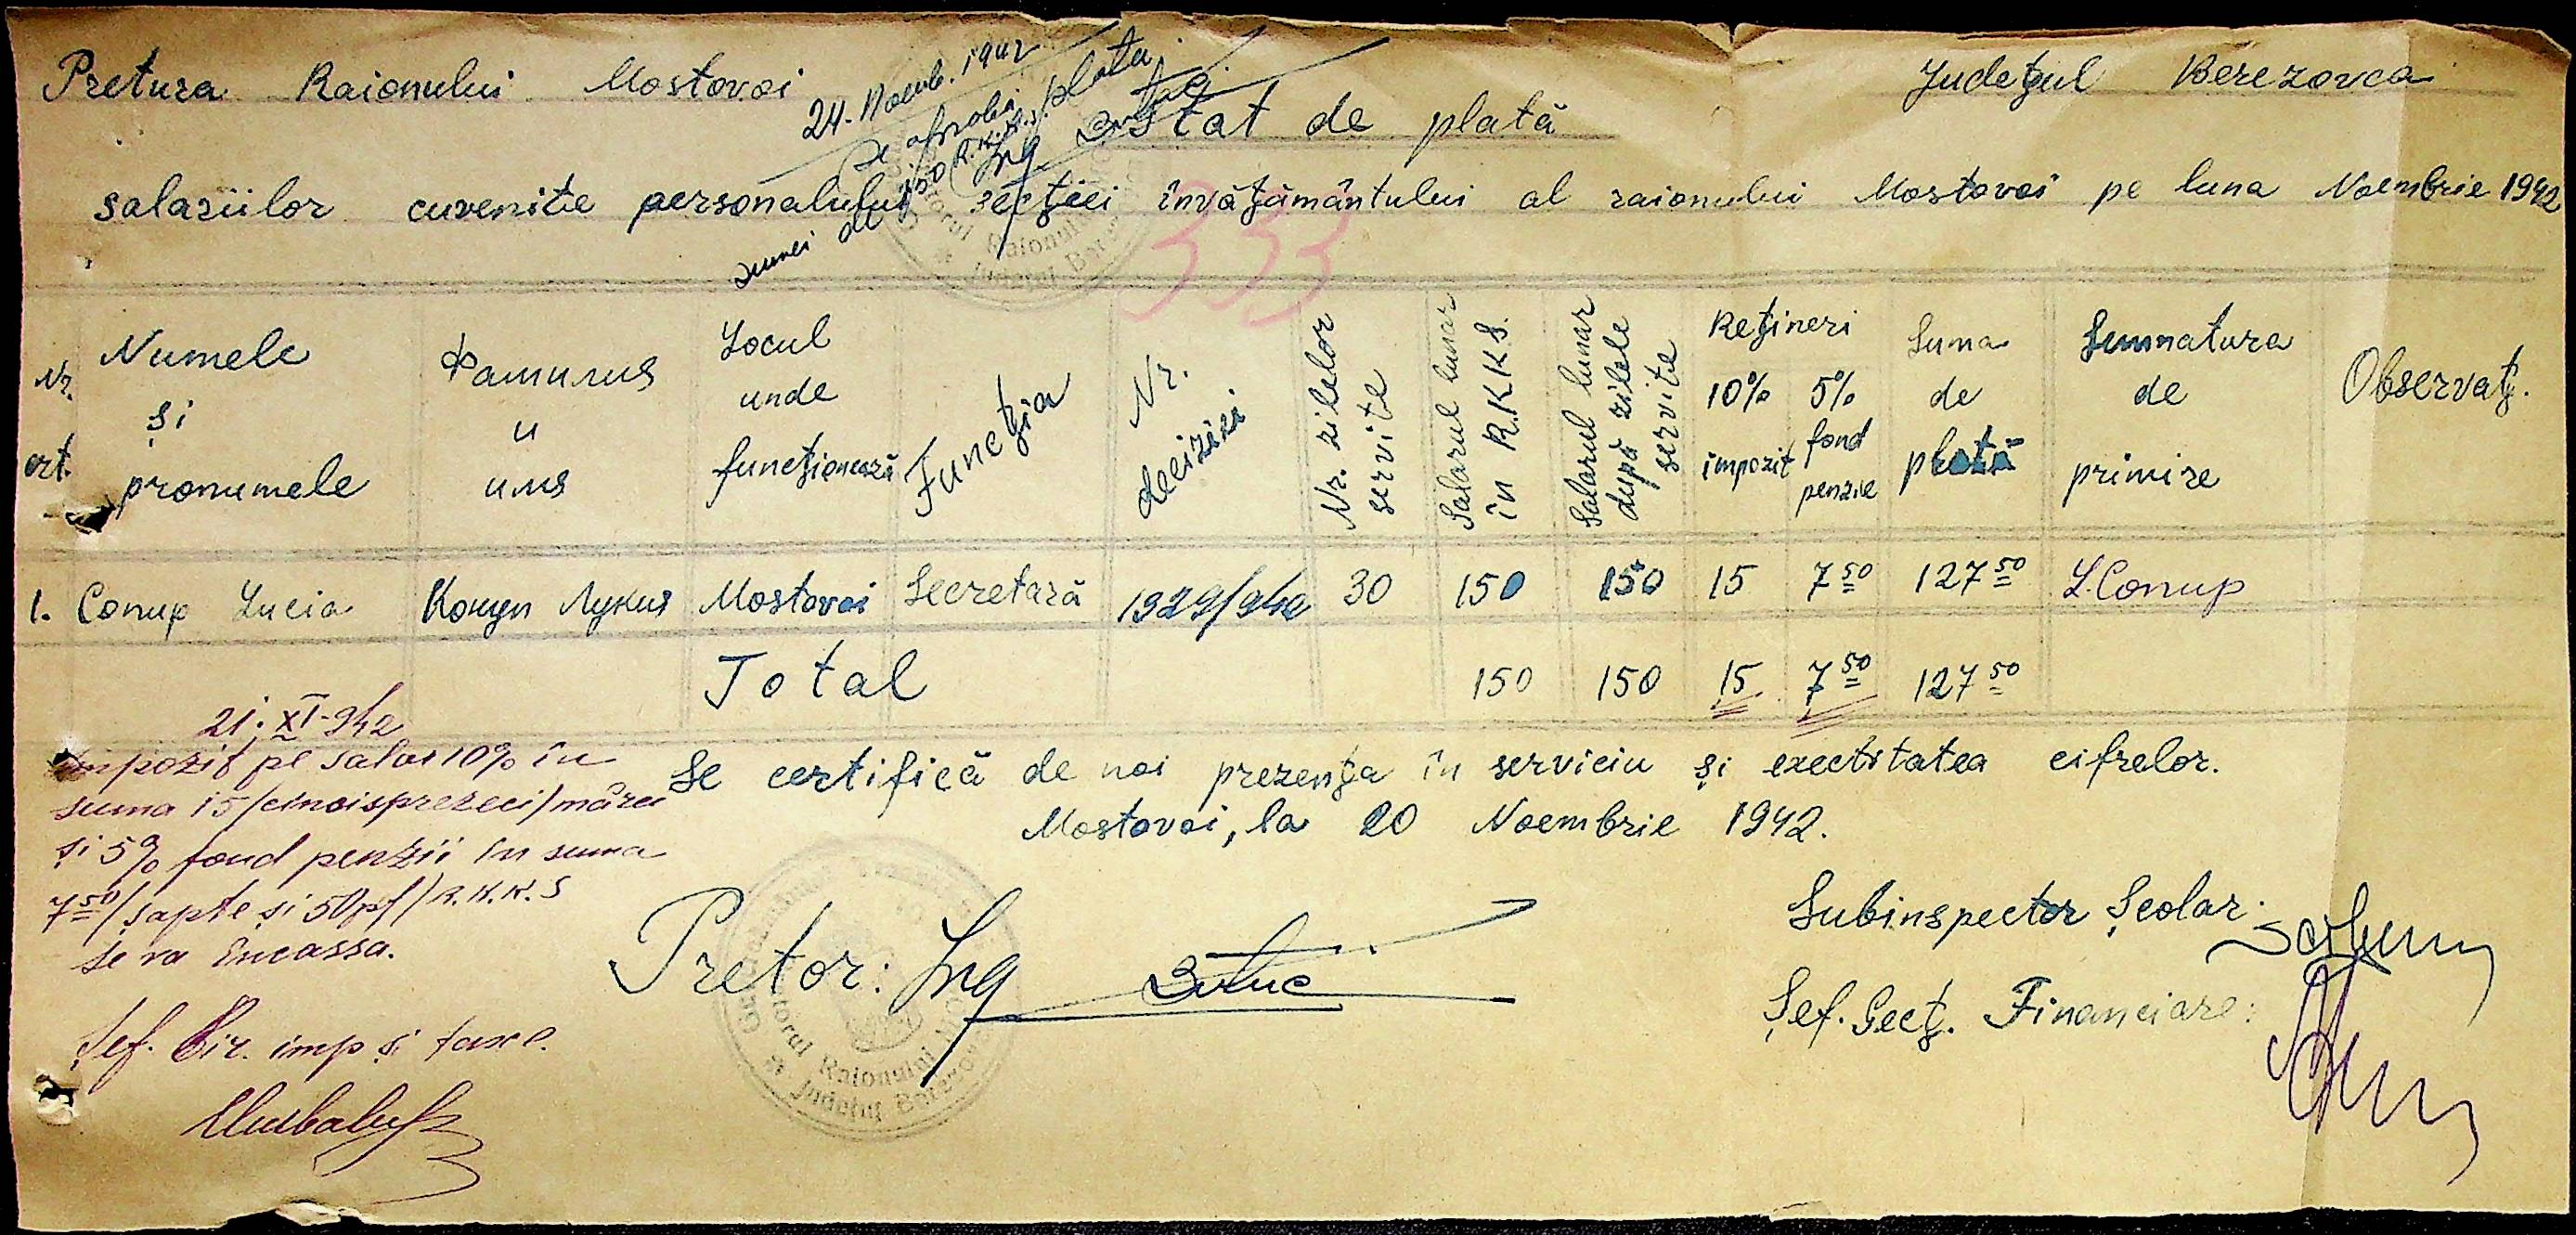 Pretura Raionului Mostovoi
Județul Berezovca
24. Noemb. 1942
Se aprobă plata
sumei de 150 R.K.K.S.
Ing
Stat de plată
salariilor cuvenite personalului secției învățământului al raionului Mostovoi pe luna Noembrie 1942
333
Nr. crt.
Numele și pronumele
Фамилия и имя
Locul unde funcționează
Funcția
Nr. deciziei
Nr. zilelor servite
Salarul lunar în R.K.K.S.
Salarul lunar după zilele servite
Rețineri
10% impozit
5% fond penzie
Suma de plată
Semnatura de primire
Observaț.
1. Conup Lucia Конуп Лукия Mostovoi Secretară 1929/942 30 150 150 15 7 50 127 50 L.Conup
Total 150 150 15 7 50 127 50
21. XI-942
Impozit pe salar 10% în
suma 15/cincisprezeci/mărci
și 5% fond penzii în suma
7 50/șapte și 50 pf/R.K.K.S
se va încassa.
Șef. Cir. imp și taxe.
Se certifică de noi prezența în serviciu și exectitatea cifrelor.
Mostovoi, la 20 Noembrie 1942.
Pretor: Ing
Subinspector Școlar.
Șef. Secț. Financiare:
Raionului
Județul